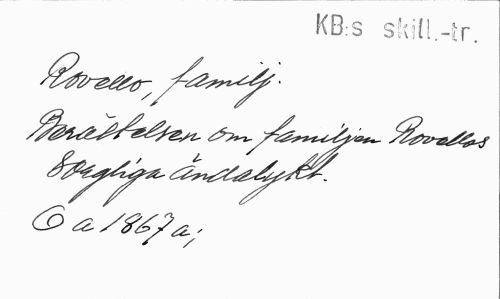 KB:s skill.-tr.
Rovello, familj.
Berättelsen om familjen Rovellos
sorgliga ändalykt.
O a 1867 a;